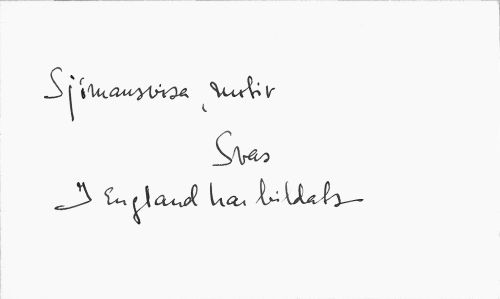 Sjömansvisa, motiv
Svas
I England har bildats